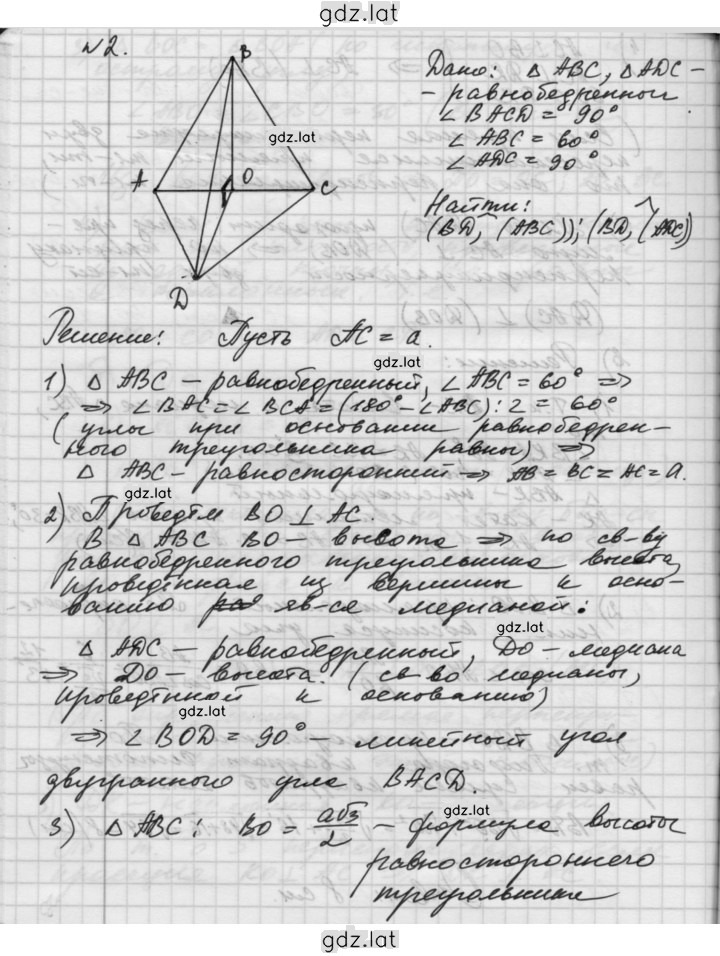 gdz.lat
№2.
B
A
O
C
D
gdz.lat
Дано: △ ABC, △ADC –
– равнобедренные
∠ BACD = 90°
∠ ABC = 60°
∠ ADC = 90°
Найти:
(BD, ^ (ABC)); (BD, ^ (ADC))
Решение: Пусть AC = a.
gdz.lat
1) △ ABC – равнобедренный, ∠ABC = 60° ⇒
⇒ ∠ BAC = ∠ BCA = (180° – ∠ABC) : 2 = 60°
(углы при основании равнобедрен-
ного треугольника равны) ⇒
△ ABC – равносторонний ⇒ AB = BC = AC = a.
gdz.lat
2) Проведём BO ⊥ AC.
В △ ABC BO – высота ⇒ по св-ву
равнобедренного треугольника высота,
проведённая из вершины к осно-
ванию яв-ся медианой:
gdz.lat
△ ADC – равнобедренный, DO – медиана
⇒ DO – высота. (св-во медианы,
проведённой к основанию)
gdz.lat
⇒ ∠ BOD = 90° – линейный угол
двугранного угла BACD.
gdz.lat
3) △ABC: BO = a√3/2 – формула высоты
равностороннего
треугольника
gdz.lat